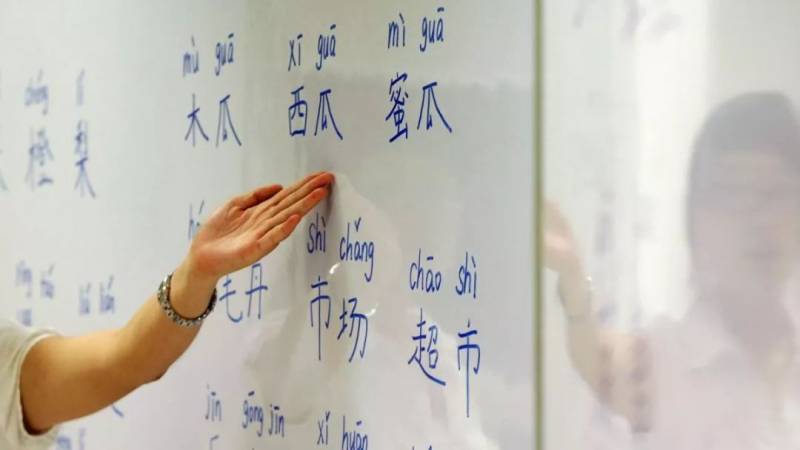 mù guā xī guā mì guā
橙 梨 木瓜 西瓜 蜜瓜
shì chǎng chāo shì
毛丹 市场 超市
jīn gōng jīn xǐ huān